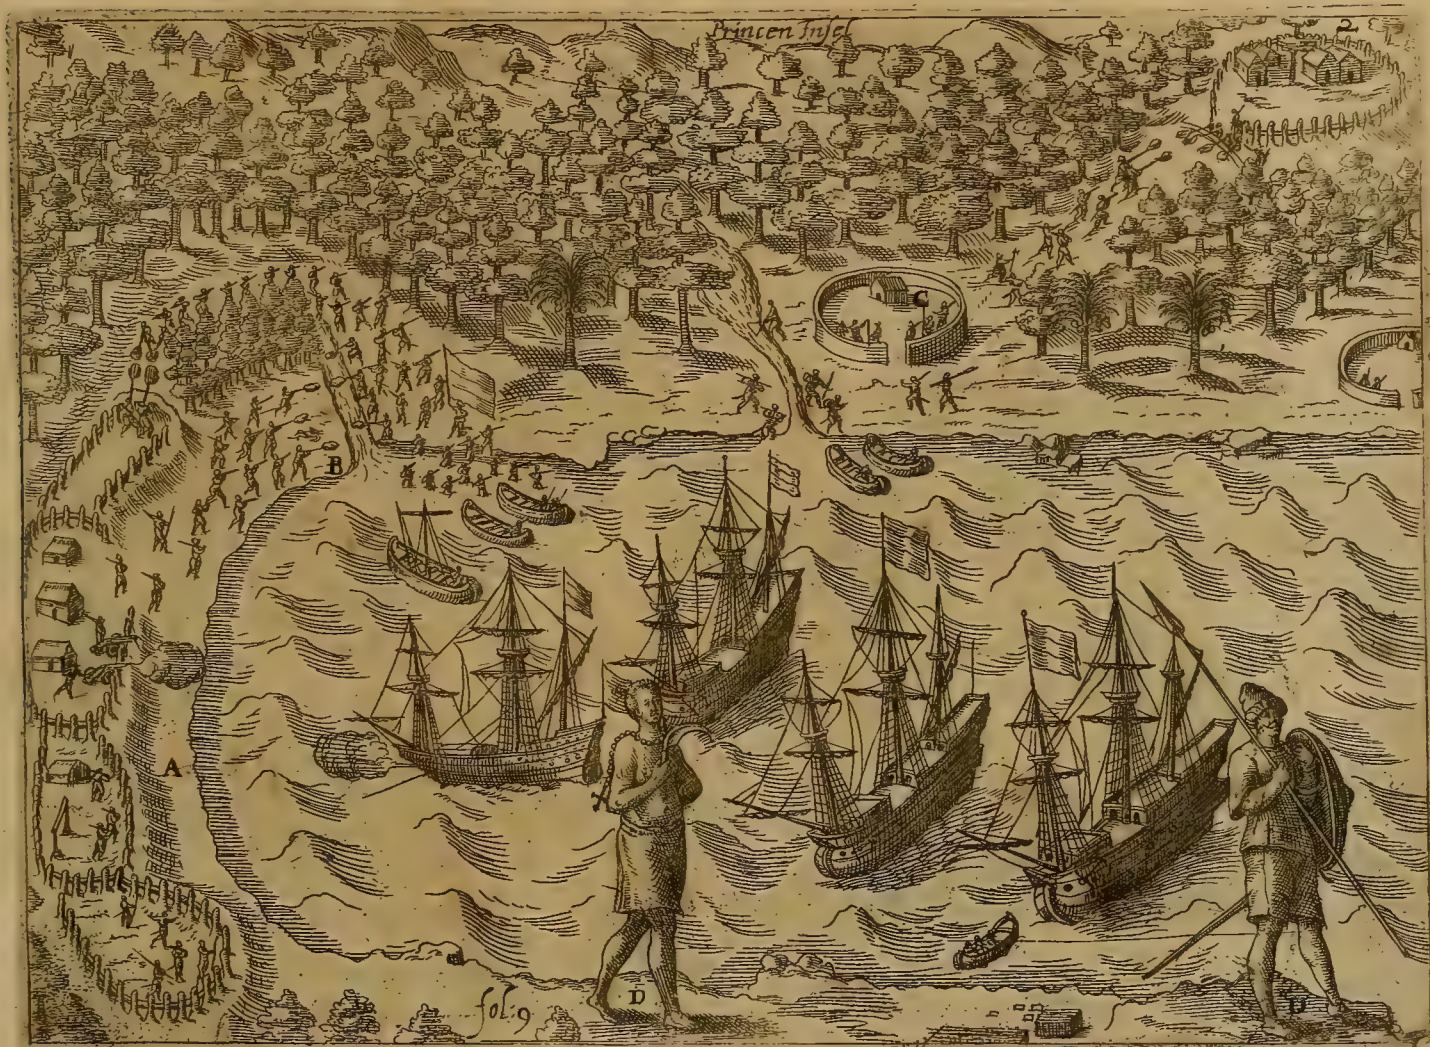 Princen Insel
2
C
B
A
D
D
fol: 9